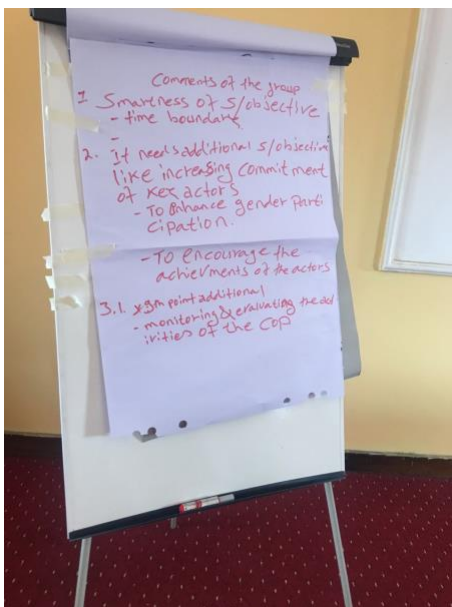 Comments of the group
1 Smartness of s/objective
- time boundary
-
2. It needs additional s/objective
like increasing commitment
of key actors
- To enhance gender parti
cipation.
- To encourage the
achievments of the actors
3.1. point additional
- monitoring & evaluating the
of the COP